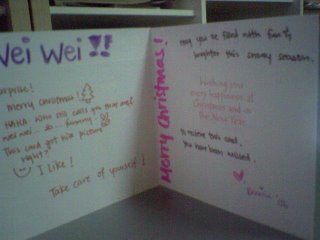 Wei Wei !!
Surprise!
Merry Christmas!
HAHA who still calls you that are?
Wei Wei.. So.. funny.
This card got nice picture
right?
I Like!
Take care of yourself!
Merry Christmas!
may you be filled with fun &
laughter this snowy season.
Wishing you
every happiness at
Christmas and in
The New Year
to receive this card.
You have been missed.